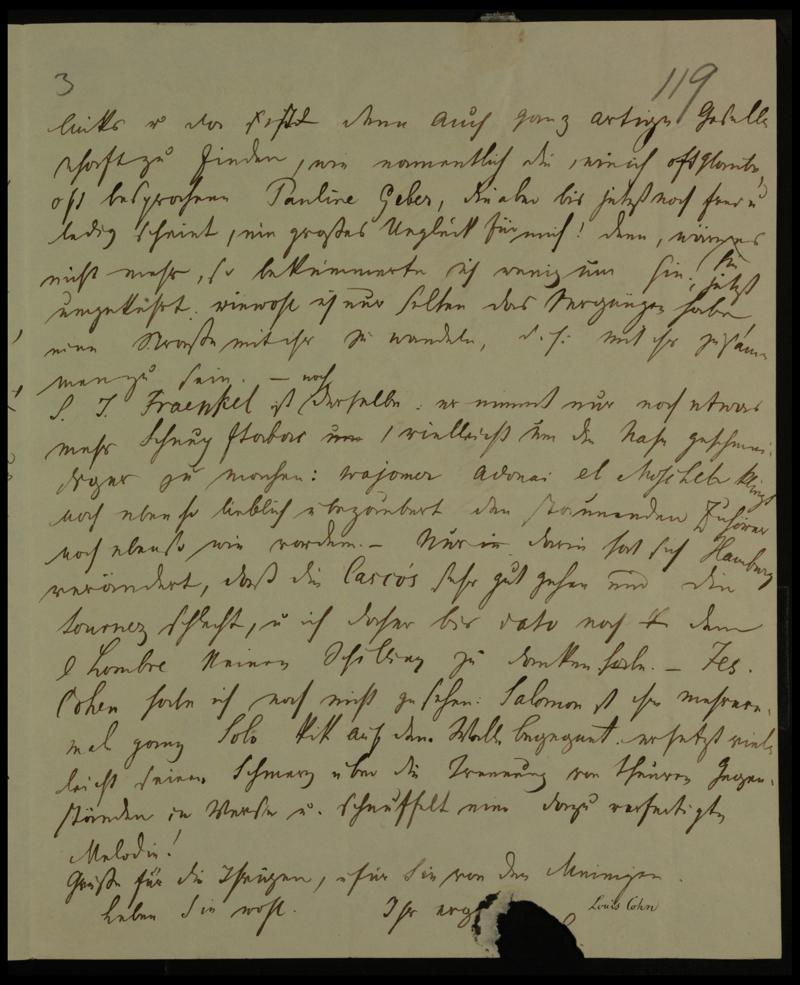 3
119
links u da denn auch ganz artige Gesell
schaft zu finden, wie namentlich die, wie ich oft glaube,
oft besprochene Pauline Geber, die aber bis jetzt noch frei u
ledig scheint, ein großes Unglück für mich! denn, wäre es
nicht mehr, so bekümmerte ich wenig um Sie, jetzt
umgekehrt. wiewohl ich nur selten das Vergnügen habe
eine Straße mit ihr zu wandeln, d. h. mit ihr zusam
men zu sein. –
S. J. Fraenkel ist noch derselbe. er nimmt nur noch etwas
mehr Schnupftabac vielleicht um die Nase geschmei
diger zu machen: wajomer adonai el Moscheh klingt
noch ebenso lieblich u bezaubert den staunenden Zuhörer
noch ebenso wie vordem. – Nur darin hat sich Hamburg
verändert, daß die Cascos sehr gut gehen und die
tournez schlecht, u ich daher bis dato noch dem
l'Hombre keinen Schilling zu danken habe. – Jes.
Cohen habe ich noch nicht gesehen. Salomon ist ihm mehrere
mal ganz Solo auf dem Walle begegnet. er setzt viel
leicht seinen Schmerz über die Trennung von theuren Gegen
ständen in Verse u. schnüffelt eine dazu verfertigte
Melodie!
Grüße für die Ihrigen, u für Sie von den Meinigen.
Leben Sie wohl. Ihr erg
Louis Cohn